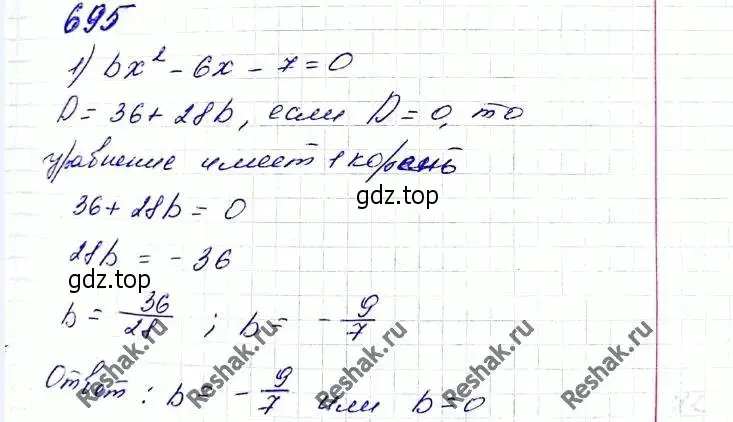 695
1) bx² - 6x - 7 = 0
D = 36 + 28b, если D = 0, то
уравнение имеет 1 корень
36 + 28b = 0
gdz.top
28b = - 36
gdz.top
b = 36/28 ; b = - 9/7
Ответ: b = - 9/7 или b = 0
Reshak.ru
Reshak.ru
Reshak.ru
Reshak.ru